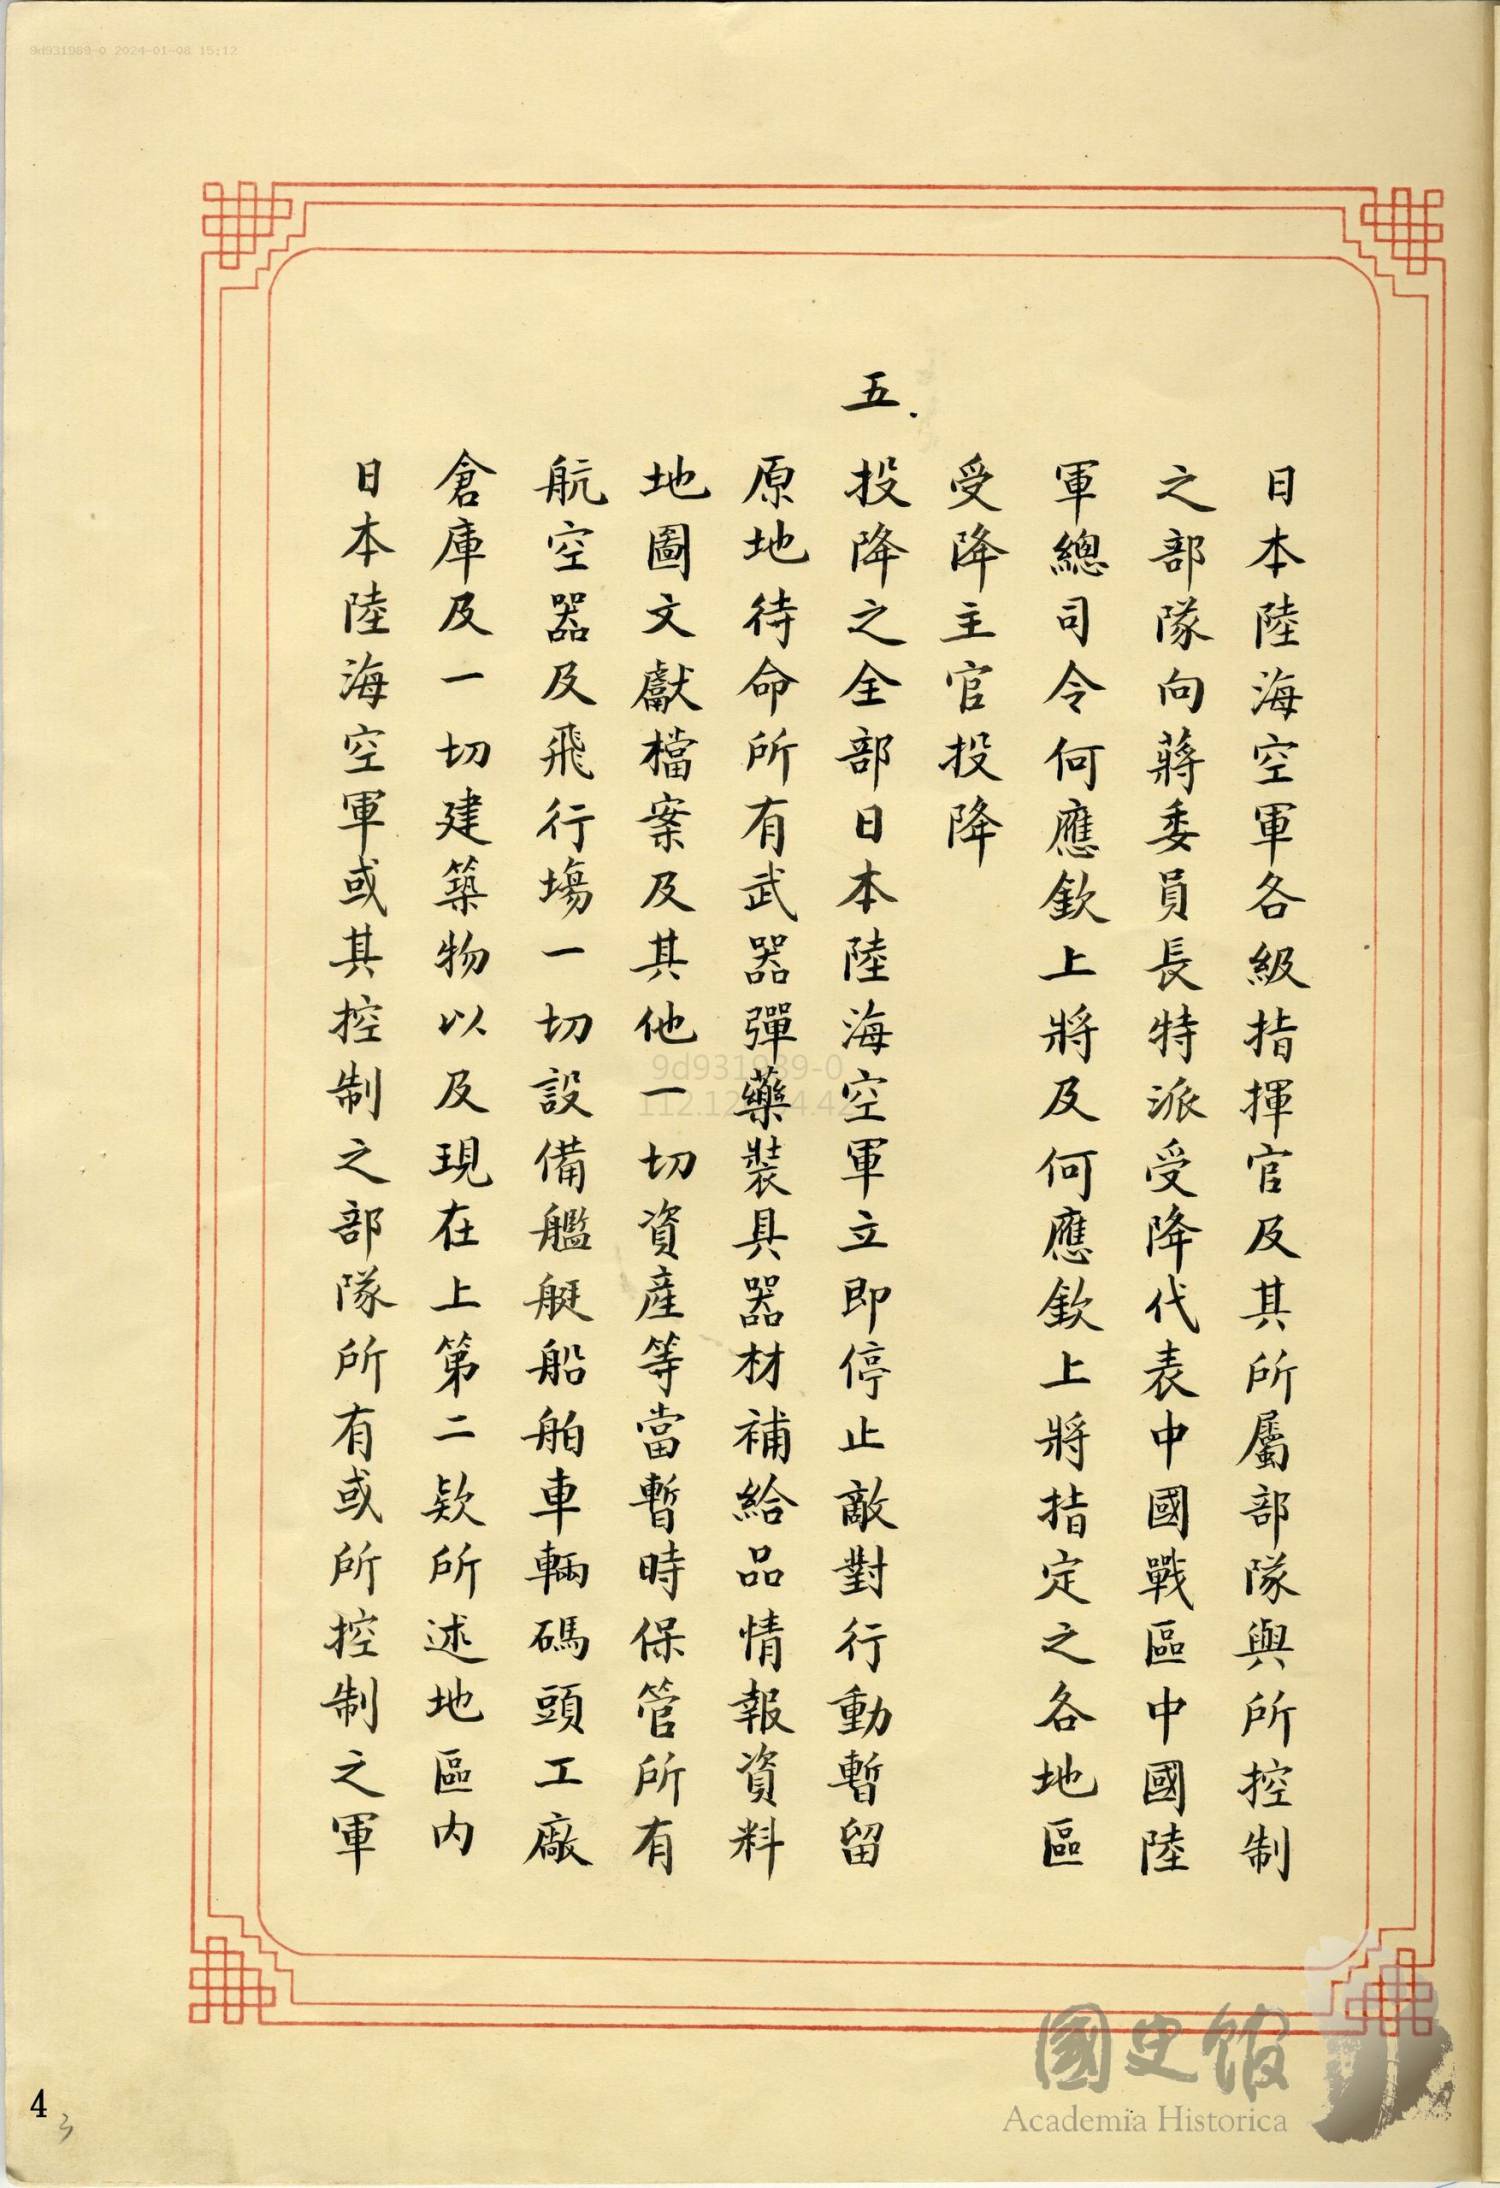 9d931989-0 2024-01-08 15:12
日本陸海空軍各級指揮官及其所屬部隊與所控制
之部隊向蔣委員長特派受降代表中國戰區中國陸
軍總司令何應欽上將及何應欽上將指定之各地區
受降主官投降
五.投降之全部日本陸海空軍立即停止敵對行動暫留
原地待命所有武器彈藥裝具器材補給品情報資料
地圖文獻檔案及其他一切資產等當暫時保管所有
航空器及飛行場一切設備艦艇船舶車輛碼頭工廠
倉庫及一切建築物以及現在上第二款所述地區內
日本陸海空軍或其控制之部隊所有或所控制之軍
9d931989-0
國史館
Academia Historica
4
3